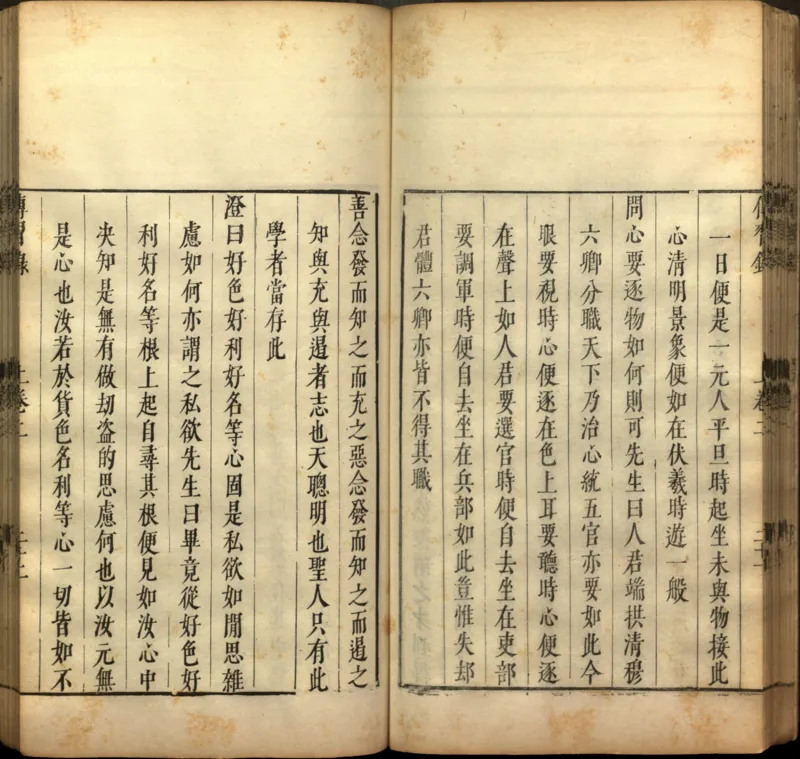 傳習錄
上卷二
一日便是一元人平旦時起坐未與物接此
心清明景象便如在伏羲時遊一般
問心要逐物如何則可先生曰人君端拱清穆
六卿分職天下乃治心統五官亦要如此今
眼要視時心便逐在色上耳要聽時心便逐
在聲上如人君要選官時便自去坐在吏部
要調軍時便自去坐在兵部如此豈惟失却
君體六卿亦皆不得其職
善念發而知之而充之惡念發而知之而遏之
知與充與遏者志也天聰明也聖人只有此
學者當存此
澄曰好色好利好名等心固是私欲如閒思雜
慮如何亦謂之私欲先生曰畢竟從好色好
利好名等根上起自尋其根便見如汝心中
夬知是無有做劫盗的思慮何也以汝元無
是心也汝若於貨色名利等心一切皆如不
傳習錄
上卷二